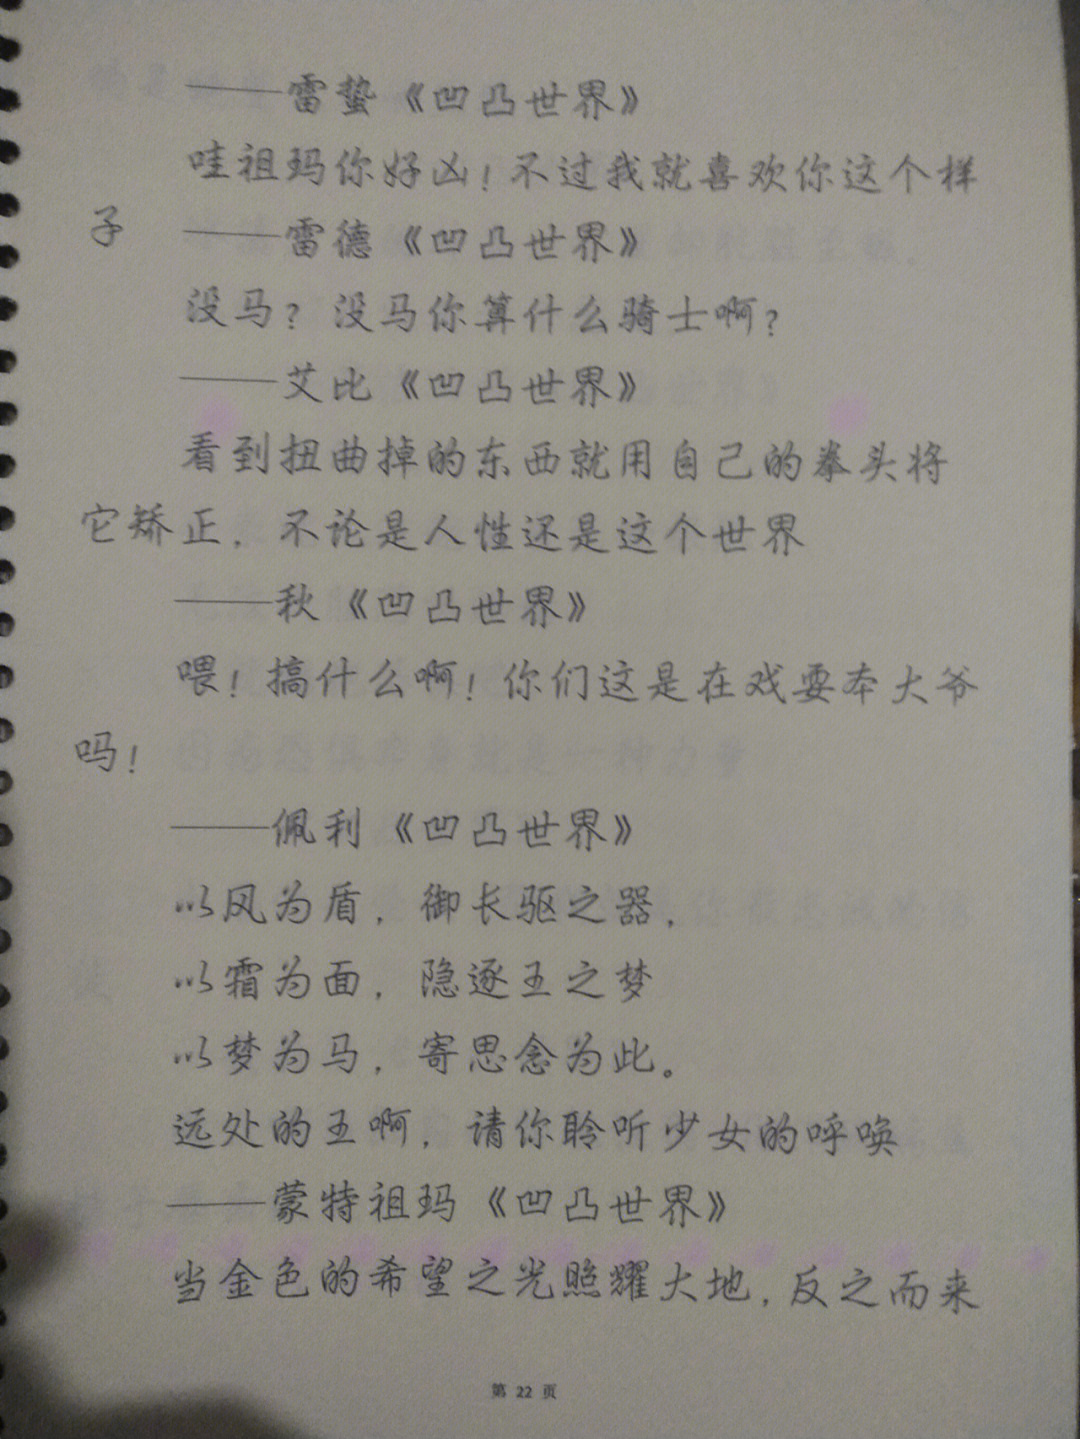 ——雷蛰《凹凸世界》
哇祖玛你好凶！不过我就喜欢你这个样
子 ——雷德《凹凸世界》
没马？没马你算什么骑士啊？
——艾比《凹凸世界》
看到扭曲掉的东西就用自己的拳头将
它矫正，不论是人性还是这个世界
——秋《凹凸世界》
喂！搞什么啊！你们这是在戏耍本大爷
吗！
——佩利《凹凸世界》
以风为盾，御长驱之器，
以霜为面，隐逐王之梦
以梦为马，寄思念为此。
远处的王啊，请你聆听少女的呼唤
——蒙特祖玛《凹凸世界》
当金色的希望之光照耀大地，反之而来
第 22 页